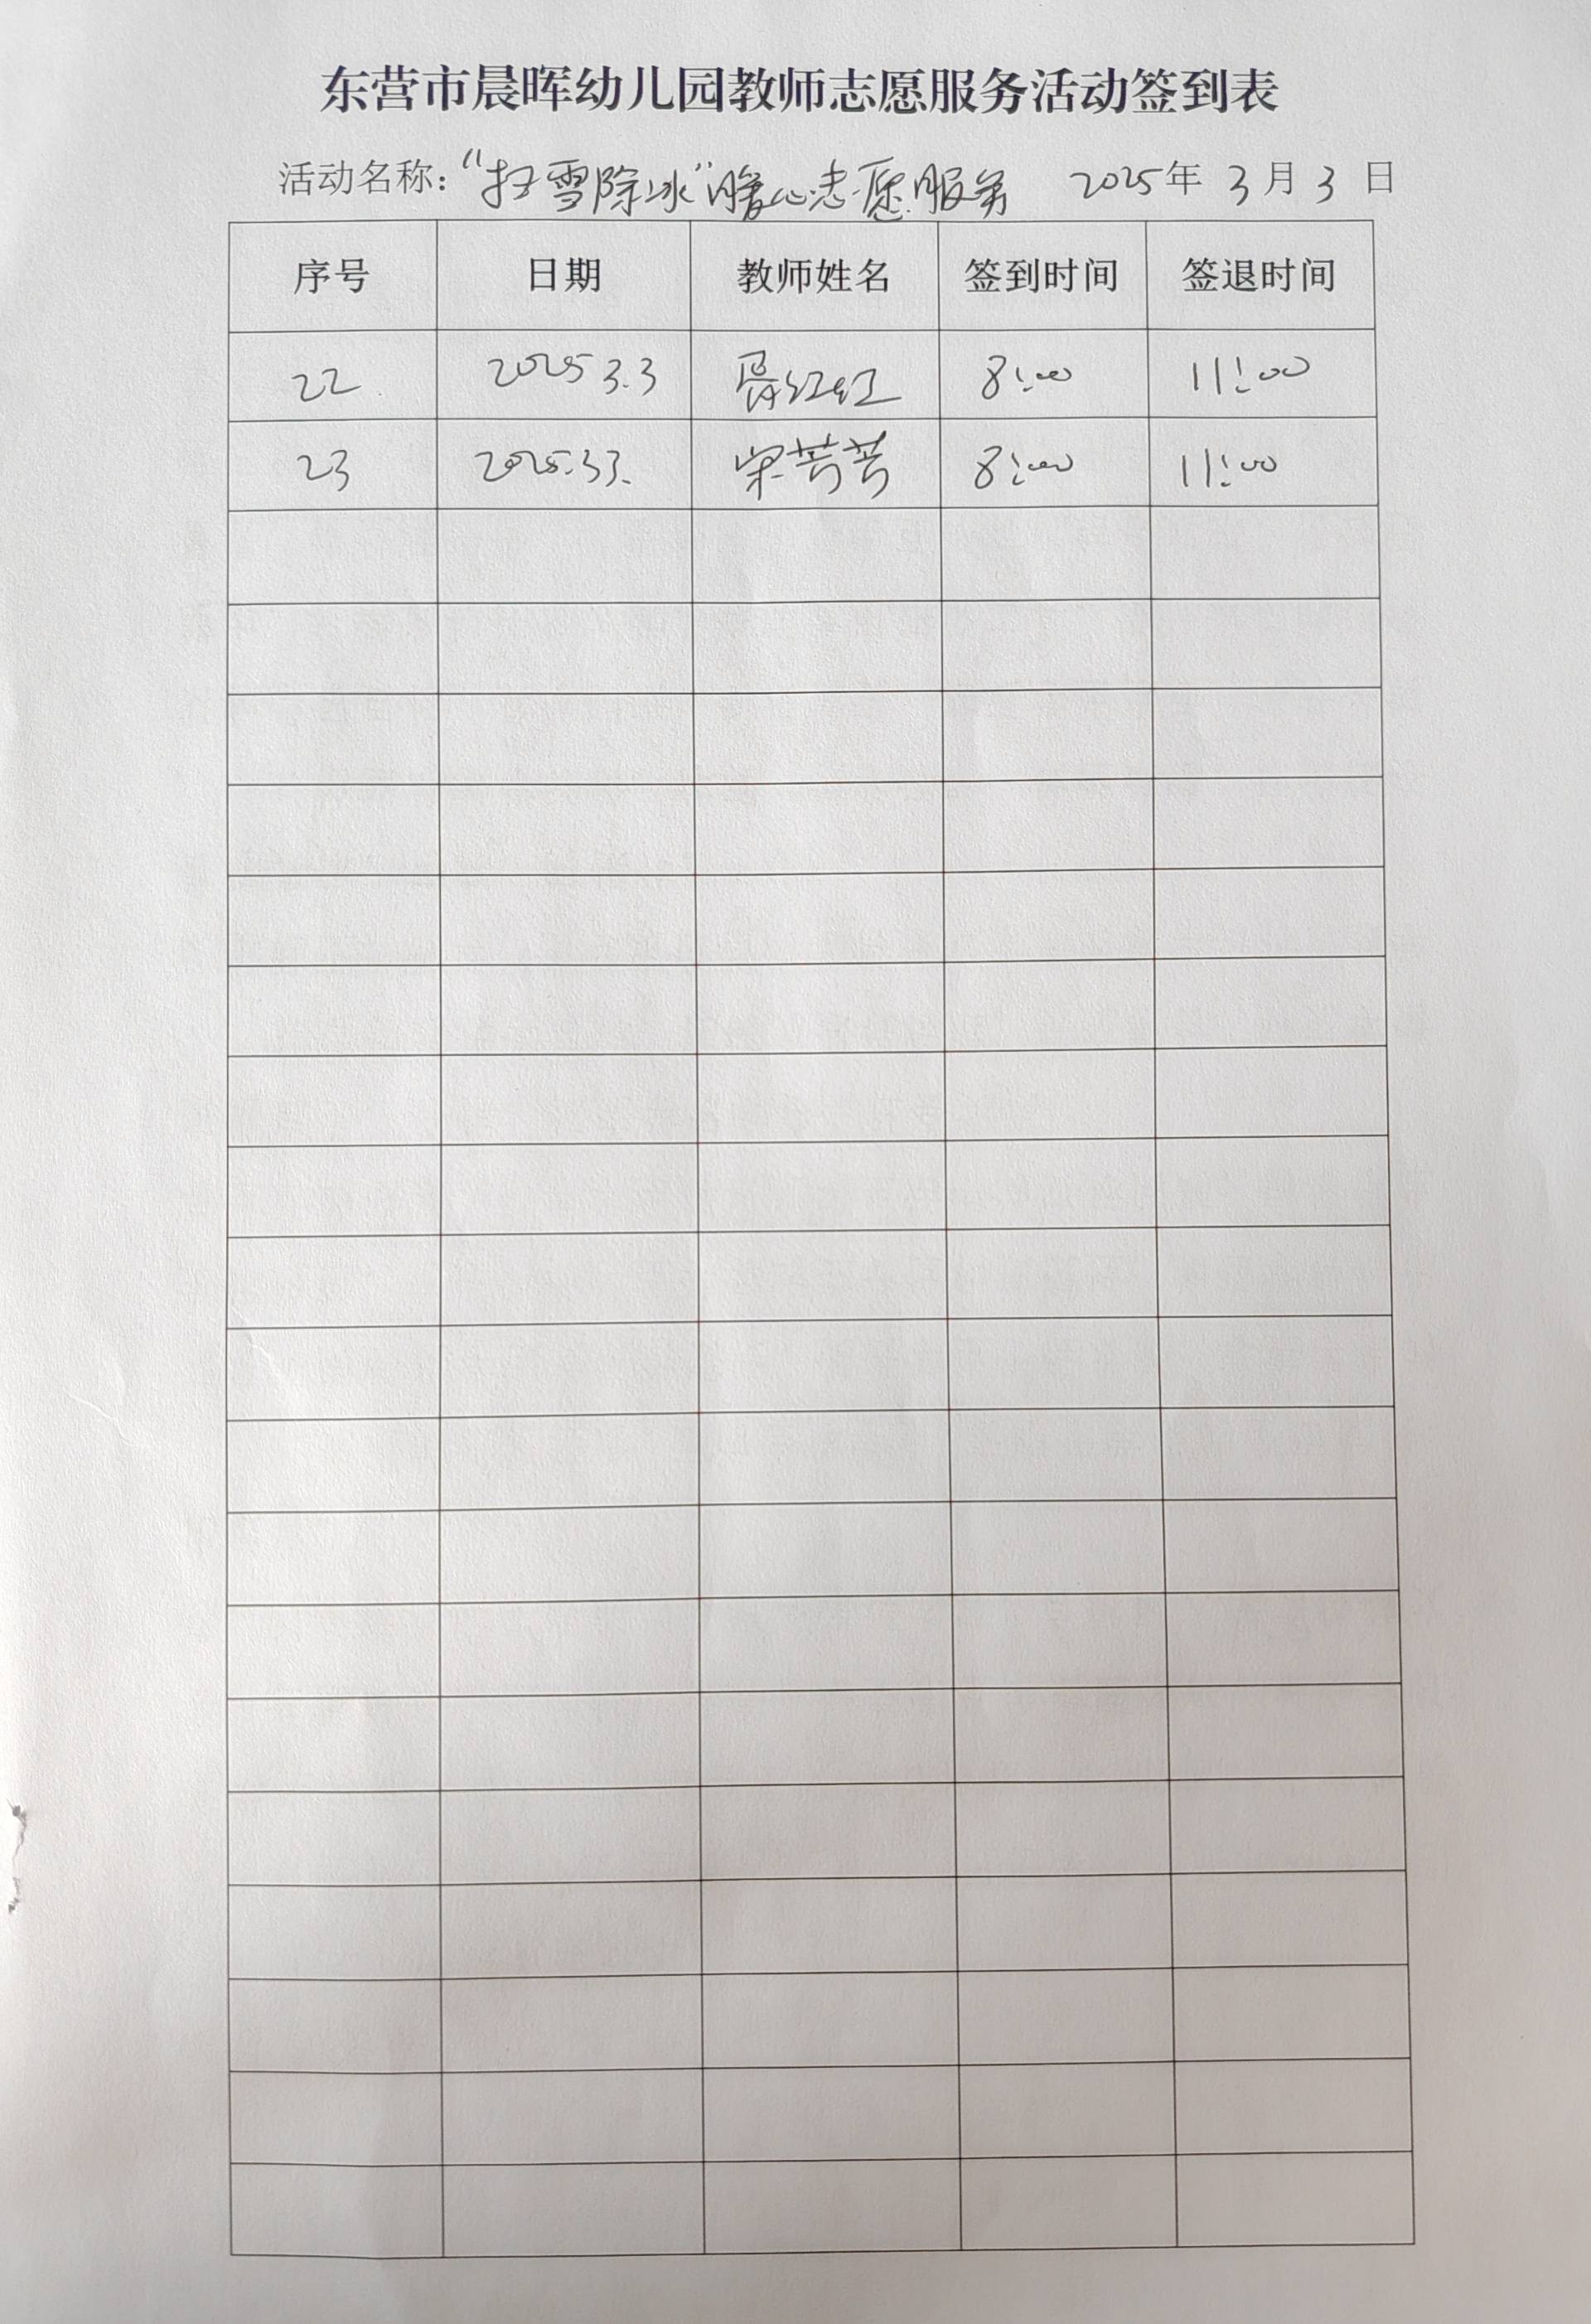 东营市晨晖幼儿园教师志愿服务活动签到表
活动名称：“扫雪除冰”暖心志愿服务 2025年 3月 3日
序号 日期 教师姓名 签到时间 签退时间
22 2025 3.3 红红 8:00 11:00
23 2025.3.3. 宋芳芳 8:00 11:00